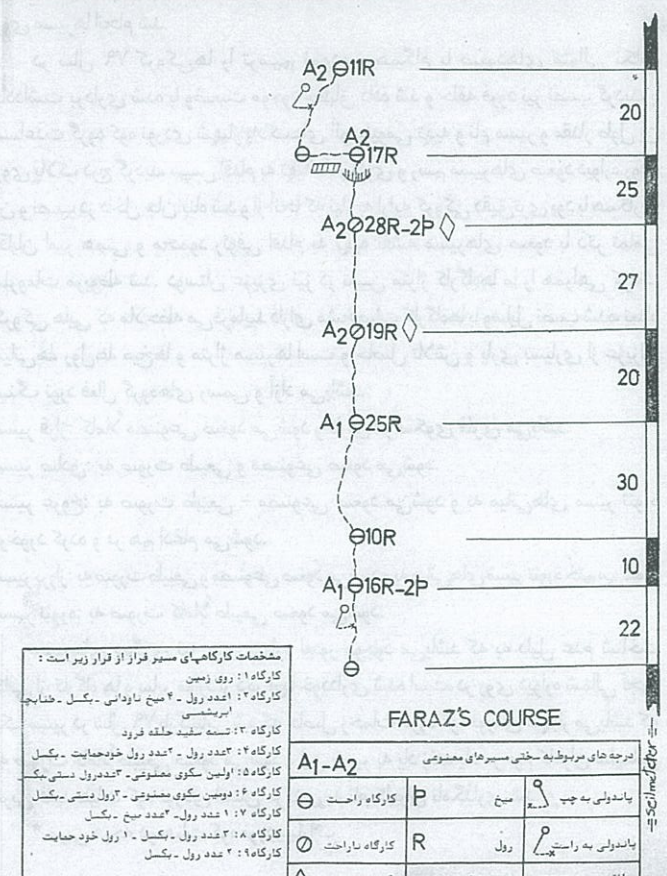 A2 11R
20
A2
17R
25
A2 28R-2Þ
27
A2 19R
20
A1 25R
30
10R
10
A1 16R-2Þ
22
FARAZ'S COURSE
مشخصات کارگاههای مسیر فراز از قرار زیر است :
کارگاه ۱ : روی زمین
کارگاه ۲ : ۱عدد رول - ۴میخ ناودانی - بکسل - طناب
ابریشمی
کارگاه ۳ : تسمه سفید حلقه فرود
کارگاه ۴ : ۳عدد رول - ۲عدد رول خودحمایت - بکسل
کارگاه ۵ : اولین سکوی مصنوعی - ۳عددرول دستی بکسل
کارگاه ۶ : دومین سکوی مصنوعی - ۳رول دستی - بکسل
کارگاه ۷ : ۱ عدد رول - ۲عدد میخ - بکسل
کارگاه ۸ : ۳عدد رول - بکسل - ۱ رول خود حمایت
کارگاه ۹ : ۲عدد رول - بکسل
A1-A2 درجه های مربوط به سختی مسیرهای مصنوعی
پاندولی به چپ
میخ
Þ
کارگاه راحت
پاندولی به راست
رول
R
کارگاه ناراحت